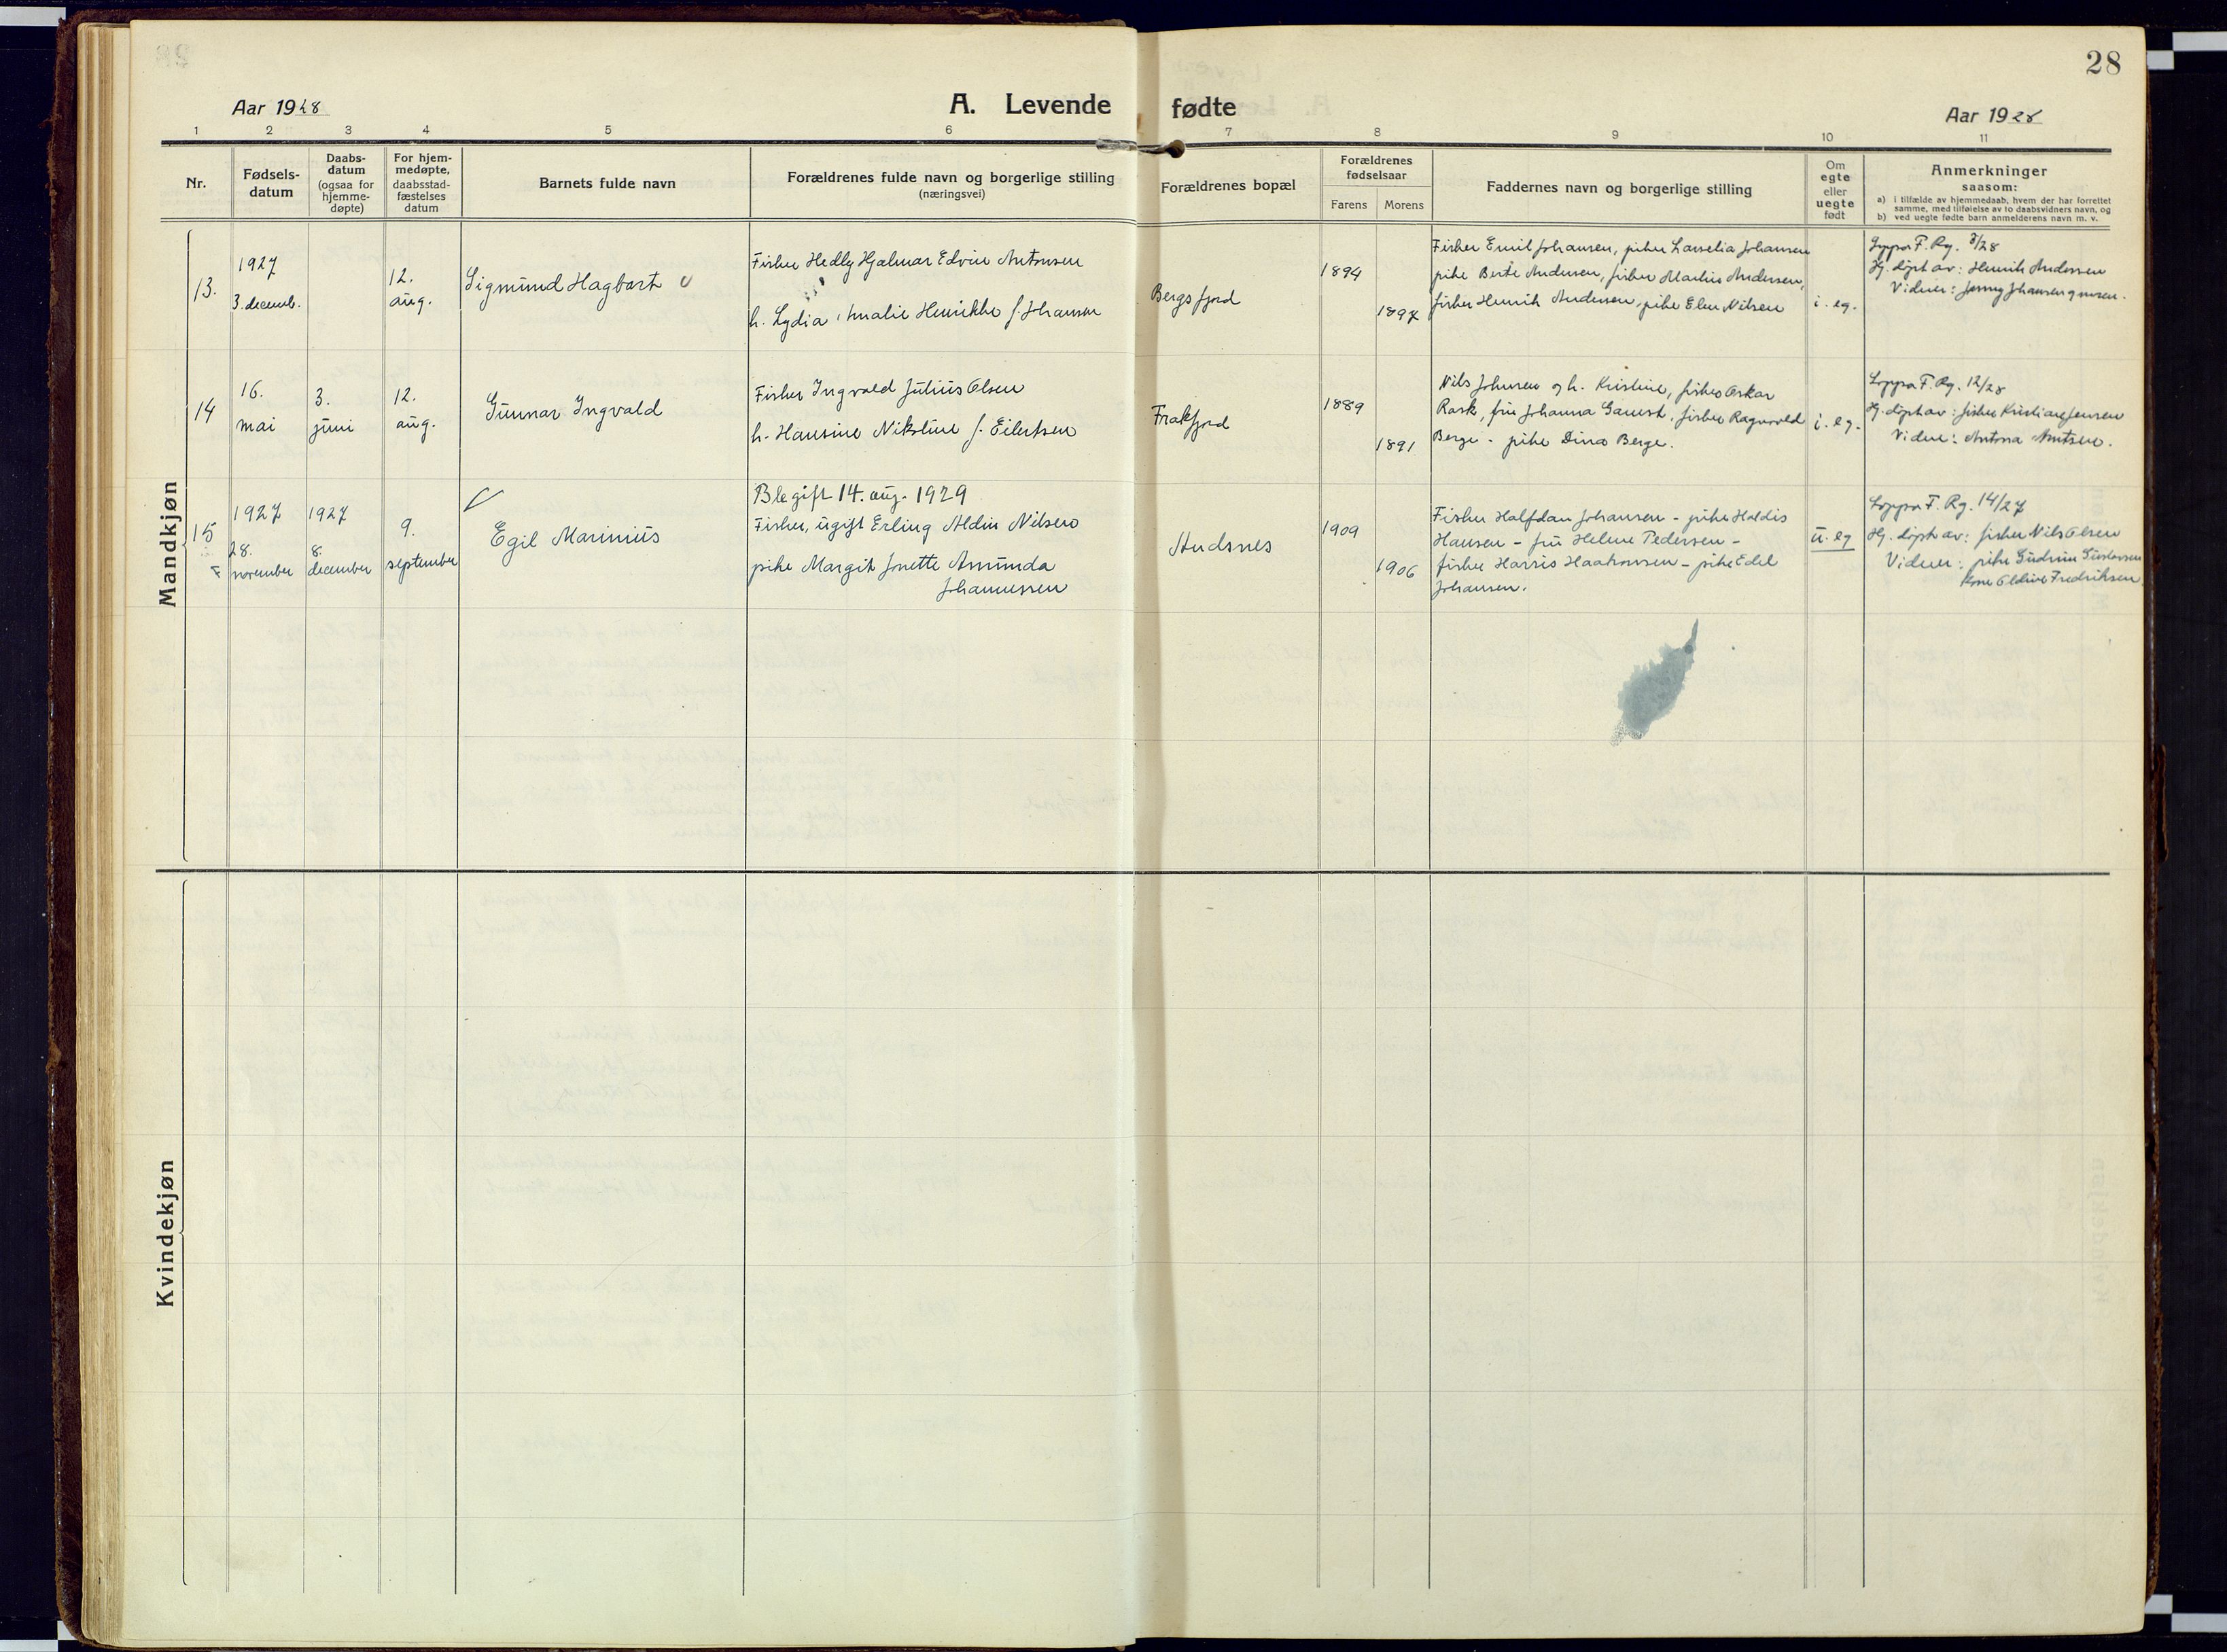 28
Aar 1928
A. Levende fødte
Aar 1928
1 2 3 4 5 6 7 8 9 10 11
Nr.
Fødsels-
datum
Daabs-
datum
(ogsaa for
hjemme-
døpte)
For hjem-
medøpte,
daabsstad-
fæstelses
datum
Barnets fulde navn
Forældrenes fulde navn og borgerlige stilling
(næringsvei)
Forældrenes bopæl
Forældrenes
fødselsaar
Farens Morens
Faddernes navn og borgerlige stilling
Om
egte
eller
uegte
født
Anmerkninger
saasom:
a) i tilfælde av hjemmedaab, hvem der har forrettet
samme, med tilføielse av to daabsvidners navn, og
b) ved uegte fødte barn anmelderens navn m. v.
Mandkjøn
13.
1927
3. decemb.
12.
aug.
Sigmund Hagbart
Fisker Hedly Hjalmar Edvin Antonsen
h. Lydia Amalie Henrikke f. Johansen
Bergsfjord
1894
1897
Fisker Emil Johansen, pike Lasselia Johansen
pike Berte Andersen, fisker Martin Andersen,
fisker Henrik Andersen, pike Elen Nilsen
i. eg.
Loppa F. Rg. 7/28
Hj. døpt av: Henrik Andersen
Vidner: Jenny Johansen
14
16.
mai
3.
juni
12.
aug.
Gunnar Ingvald
Fisker Ingvald Julius Olsen
h. Hansine Nikoline f. Eilertsen
Frakfjord
1889
1891
Nils Johnsen og h. Kristine, fisker Oskar
Rask, fru Johanna Gamst, fisker Ragnvald
Berge - pike Dina Berge.
i. eg.
Loppa F. Rg. 12/28
Hj. døpt av: fisker Kristian Jensen
Vidne: Antona Arntsen.
15
1927
28.
november
1927
8.
december
9.
september
Egil Marinius
Ble gift 14. aug. 1929
Fisker, ugift Erling Aldin Nilsen
pike Margit Jonette Amunda
Johannessen
Andsnes
1909
1906
Fisker Halfdan Johansen - pike Haldis
Hansen - fru Helene Pedersen -
fisker Harris Haakonsen - pike Edel
Johansen.
u. eg
Loppa F. Rg. 14/27
Hj. døpt av: fisker Nils Olsen
Vidner: pike Gudrun Gustavsen
Kone Oldine Fredriksen
Kvindekjøn